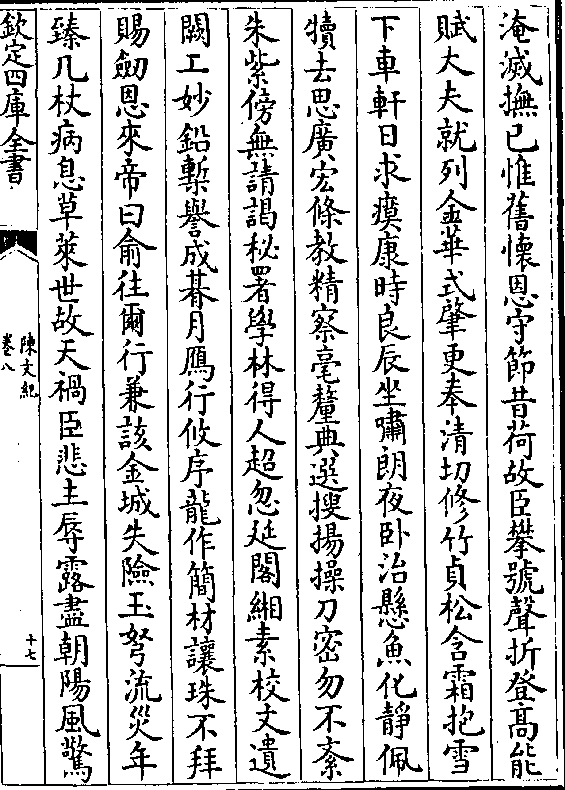 淹滅撫已惟舊懷恩守節昔荷故臣攀號聲折登髙能
賦大夫就列金華式肇更奉清切修竹貞松含霜抱雪
下車軒日求瘼康時良辰坐嘯朗夜卧治懸魚化静佩
犢去思廣宏條教精察毫釐典選搜揚操刀密勿不紊
朱紫傍無請謁秘署學林得人超忽延閣緗素校文遺
闕工妙鉛槧譽成朞月鴈行攸序龍作簡材讓珠不拜
賜劒恩來帝曰俞往爾行兼該金城失險玉弩流災年
臻几杖病息草萊世故天禍臣悲主辱露盡朝陽風驚
欽定四庫全書
陳文紀
卷八
十七